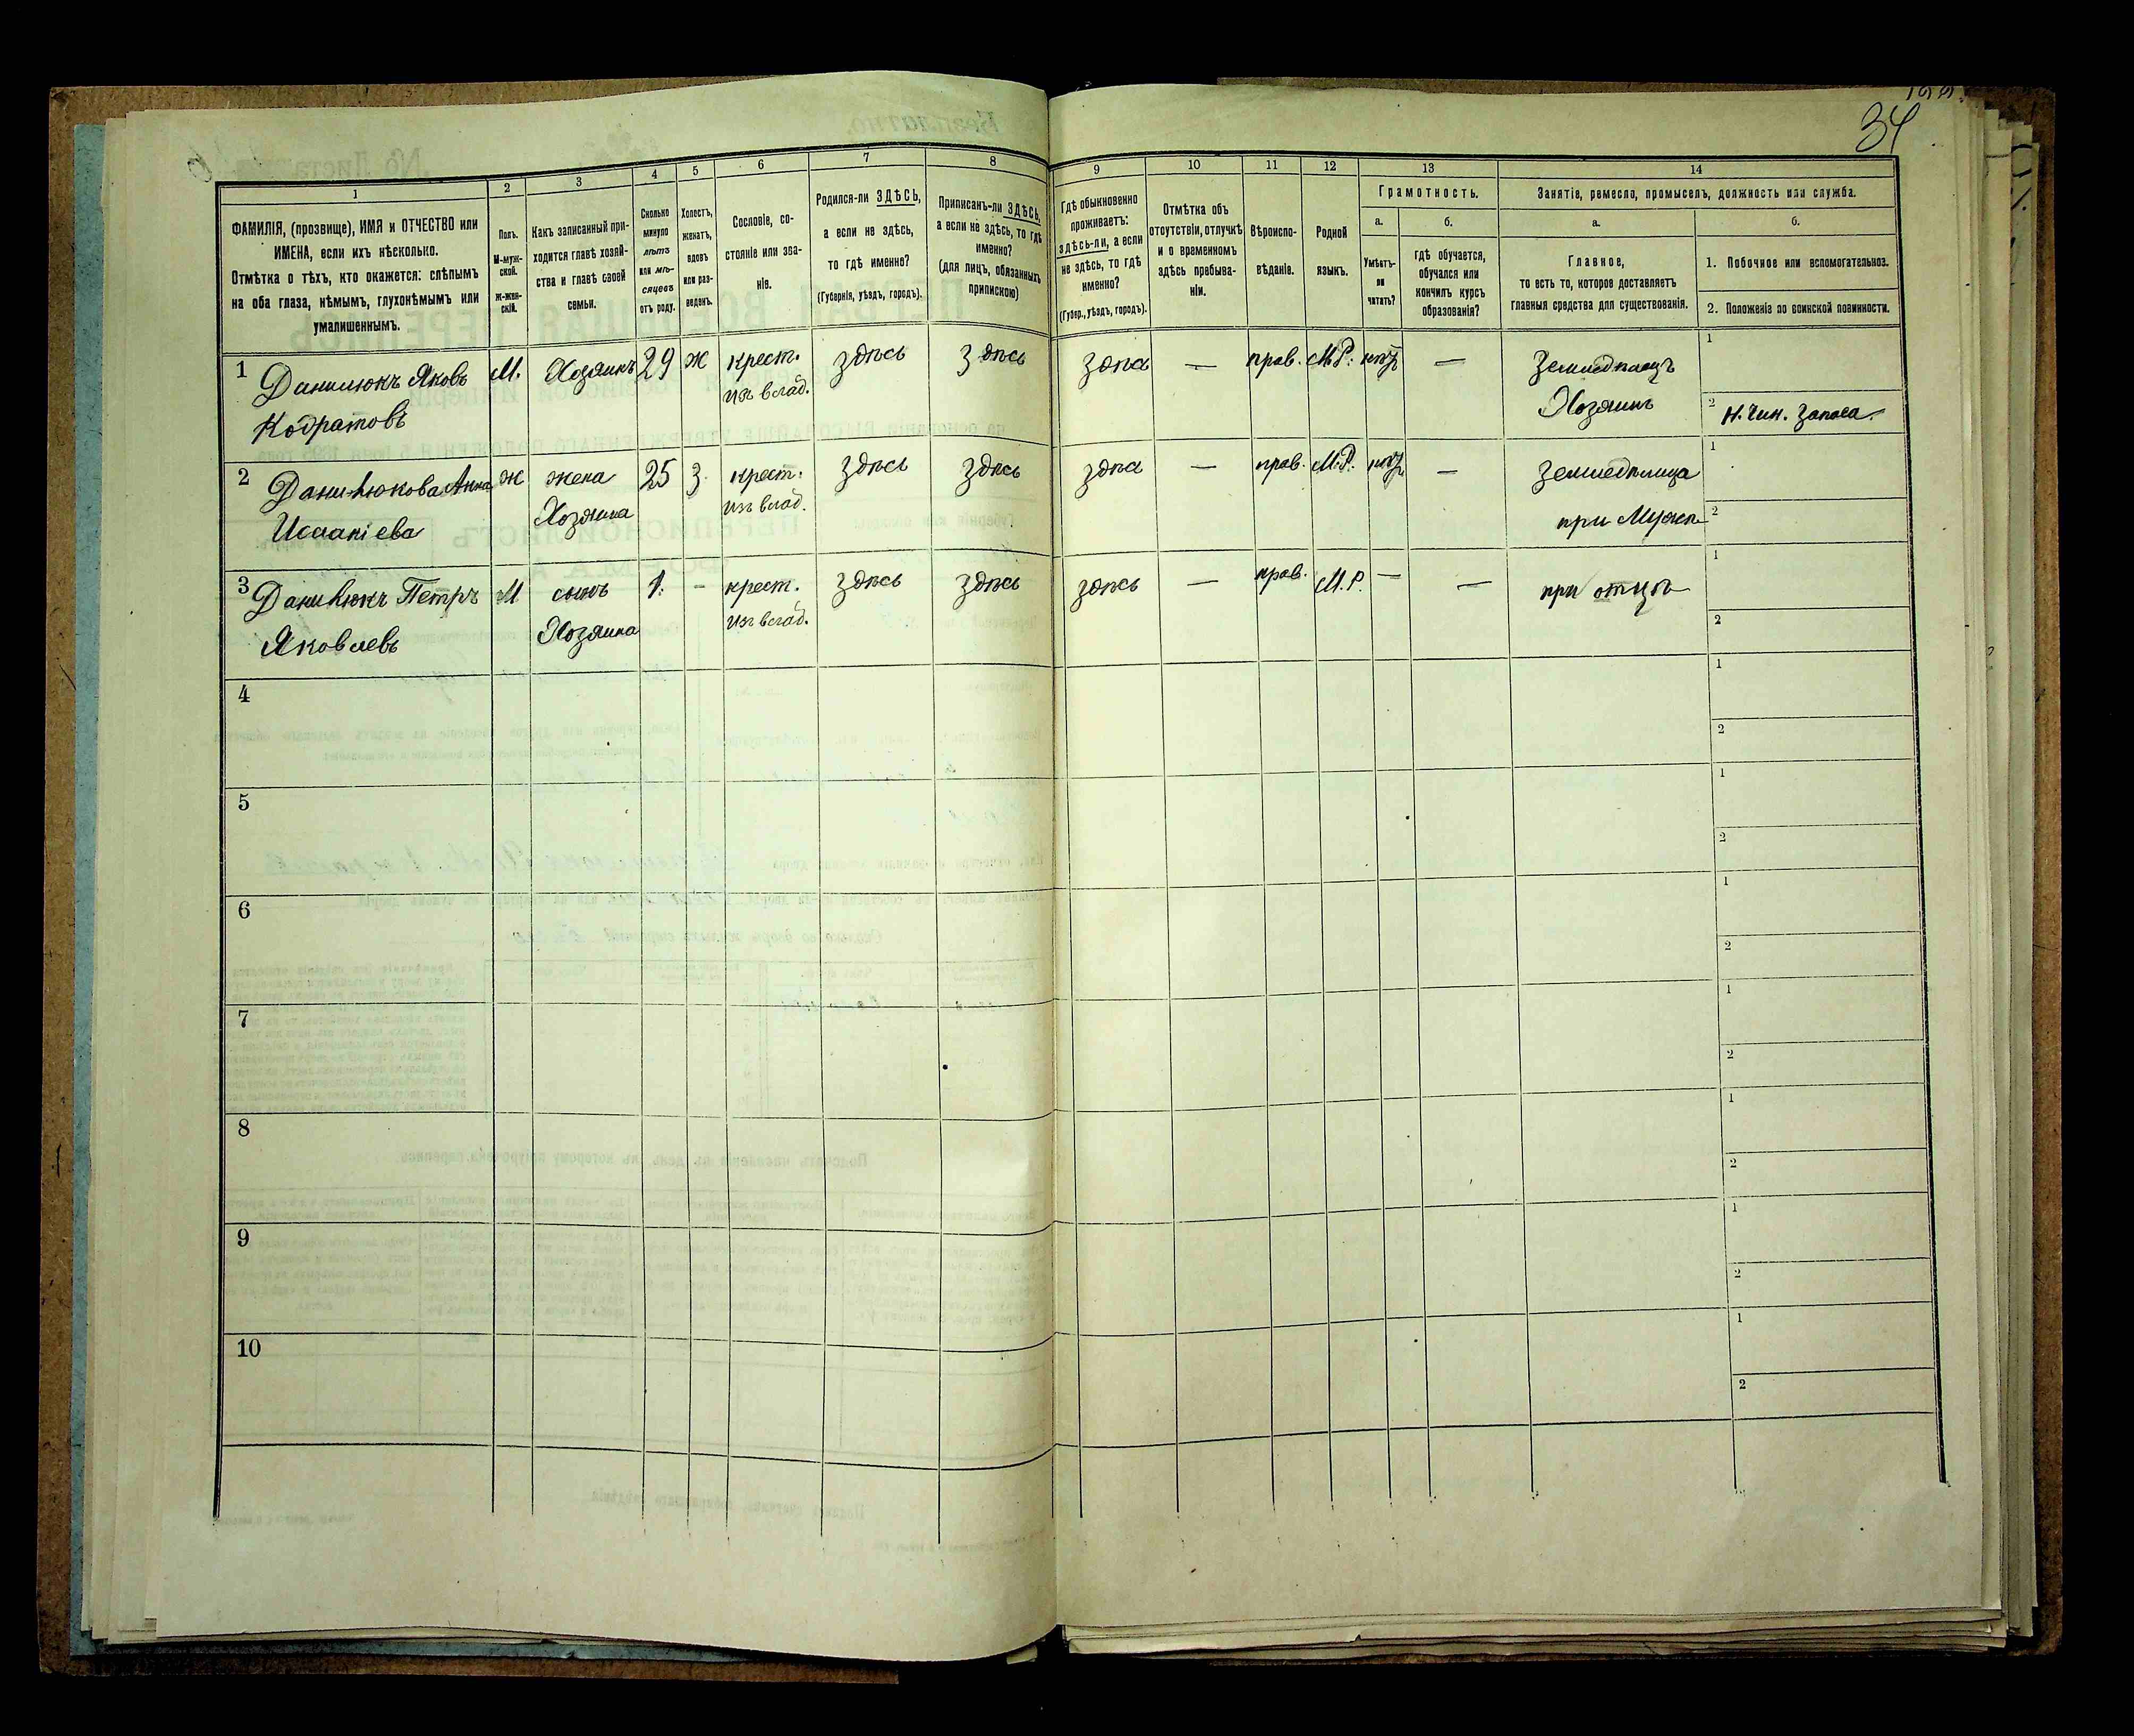 34
1 2 3 4 5 6 7 8 9 10 11 12 13 14
ФАМИЛІЯ, (прозвище), ИМЯ и ОТЧЕСТВО или
ИМЕНА, если ихъ нѣсколько.
Отмѣтка о тѣхъ, кто окажется: слѣпымъ
на оба глаза, нѣмымъ, глухонѣмымъ или
умалишеннымъ.
Полъ.
М-муж-
ской.
Ж-жен-
скій.
Какъ записанный при-
ходится главѣ хозяй-
ства и главѣ своей
семьи.
Сколько
минуло
лѣтъ
или мѣ-
сяцевъ
отъ роду.
Холостъ,
женатъ,
вдовъ
или раз-
веденъ.
Сословіе, со-
стояніе или зва-
ніе.
Родился-ли ЗДѢСЬ,
а если не здѣсь,
то гдѣ именно?
(Губернія, уѣздъ, городъ).
Приписанъ-ли ЗДѢСЬ,
а если не здѣсь, то гдѣ
именно?
(для лицъ, обязанныхъ
припискою)
Гдѣ обыкновенно
проживаетъ:
здѣсь-ли, а если
не здѣсь, то гдѣ
именно?
(Губер., уѣздъ, городъ).
Отмѣтка объ
отсутствіи, отлучкѣ
и о временномъ
здѣсь пребыва-
ніи.
Вѣроиспо-
вѣданіе.
Родной
языкъ.
Грамотность.
а.
Умѣетъ-
ли
читать?
б.
гдѣ обучается,
обучался или
кончилъ курсъ
образованія?
Занятія, ремесло, промыселъ, должность или служба.
а.
Главное,
то есть то, которое доставляетъ
главныя средства для существованія.
б.
1. Побочное или вспомогательное.
2. Положеніе по воинской повинности.
1 Данилюкъ Яковъ М. Хозяинъ 29 ж крест. здѣсь здѣсь здѣсь — прав. М.Р. — Земледѣлецъ 1
Кодратовъ изъ влад. Хозяинъ 2 Н. Чин. Запаса
2 Данилюкова Анна ж жена 25 з. крест. здѣсь здѣсь здѣсь — прав. М.Р. — Земледѣлица 1
Хозяина изъ влад. при Мужѣ 2
3 Данилюкъ Петръ М сынъ 1. - крест. здѣсь здѣсь здѣсь — прав. М.Р. — — при отцѣ 1
Яковлевъ Хозяина изъ влад. 2
4 1
2
5 1
2
6 1
2
7 1
2
8 1
2
9 1
2
10 1
2